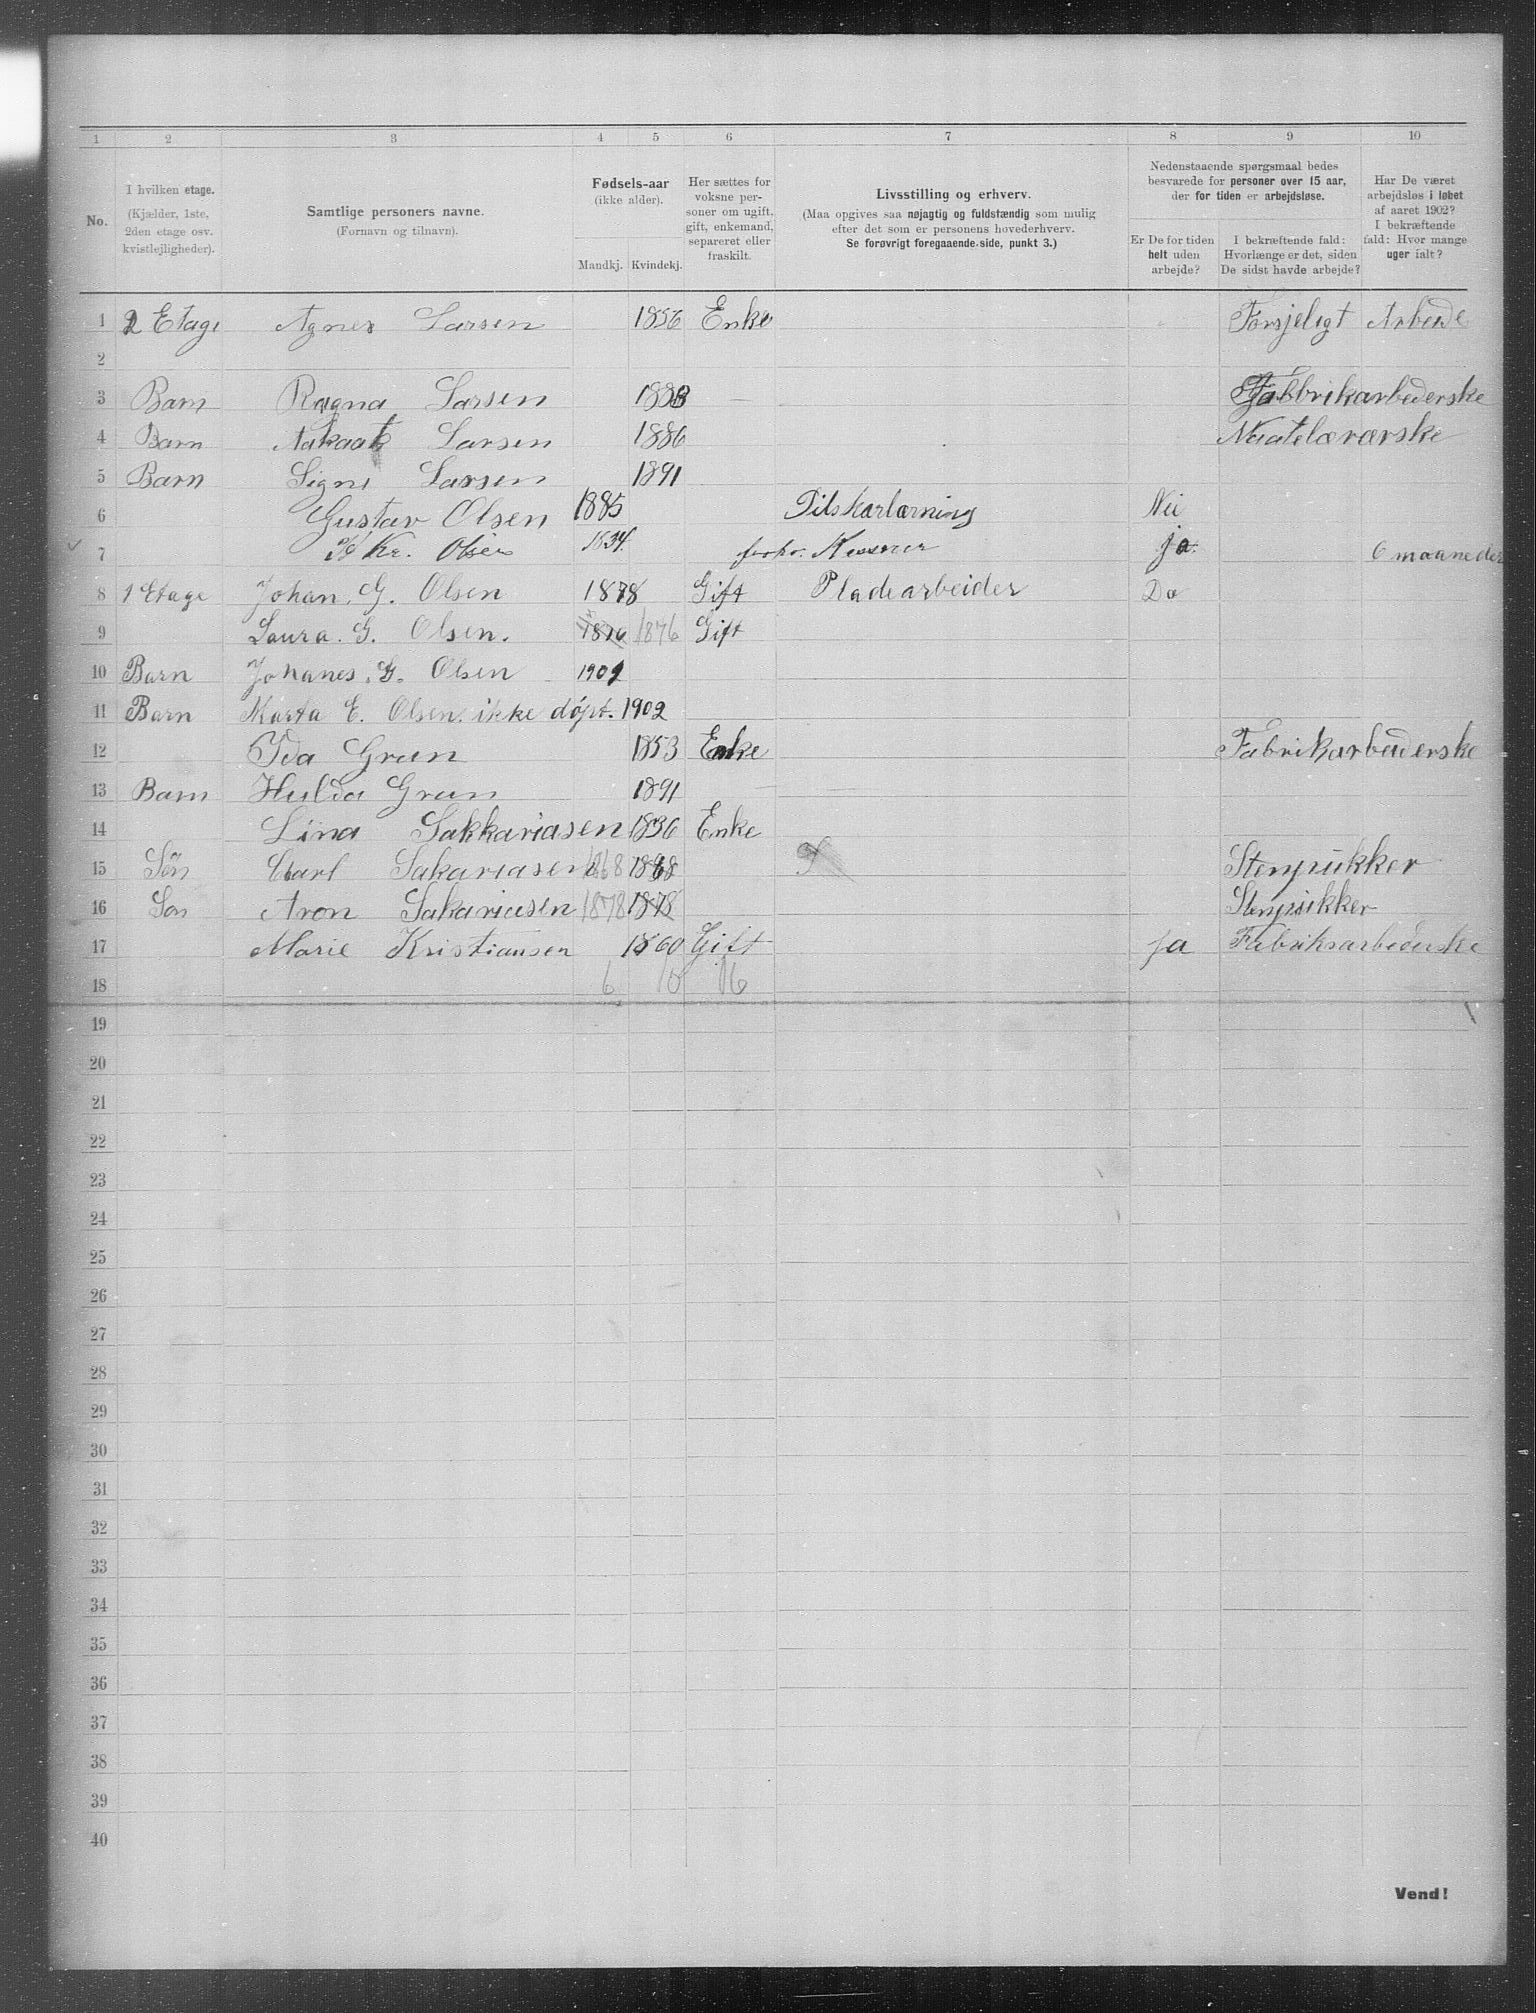 1 2 3 4 5 6 7 8 9 10
No.
I hvilken etage.
(Kjælder, 1ste,
2den etage osv.
kvistlejligheder).
Samtlige personers navne.
(Fornavn og tilnavn).
Fødsels-aar
(ikke alder).
Mandkj. Kvindekj.
Her sættes for
voksne per-
soner om ugift,
gift, enkemand,
separeret eller
fraskilt.
Livsstilling og erhverv.
(Maa opgives saa nøjagtig og fuldstændig som mulig
efter det som er personens hovederhverv.
Se forøvrigt foregaaende side, punkt 3.)
Nedenstaaende spørgsmaal bedes
besvarede for personer over 15 aar,
der for tiden er arbejdsløse.
Er De for tiden
helt uden
arbejde?
I bekræftende fald:
Hvorlænge er det, siden
De sidst havde arbejde?
Har De været
arbejdsløs i løbet
af aaret 1902?
I bekræftende
fald: Hvor mange
uger ialt?
1 2 Etage Agnes Larsen 1856 Enke Forsjeligt Arbeide
2
3 Barn Ragna Larsen 1883 Fabbrikarbederske
4 Barn Larsen 1886
5 Barn Signe Larsen 1891
6 Gustav Olsen 1885 Nei
7 Kr. Olsen 1834 ja. 6 maaneder
8 1 Etage Johan. G. Olsen 1878 Gift Pladearbeider Do
9 Laura. G. Olsen. 1876 1876 Gift
10 Barn Johanes. G. Olsen 1901
11 Barn Marta E. Olsen. ikke døpt. 1902
12 Ida Grun 1853 Enke Fabrikarbeiderske
13 Barn Hulda Grun 1891
14 Lina Sakkariasen 1836 Enke
15 Søn Carl Sakariasen 1868 1868 Stenpukker
16 Son Aron Sakariasen 1878 1878 Stenpukker
17 Marie Kristiansen 1860 Gift ja Fabriksarbederske
18 6 10 16
19
20
21
22
23
24
25
26
27
28
29
30
31
32
33
34
35
36
37
38
39
40
Vend!